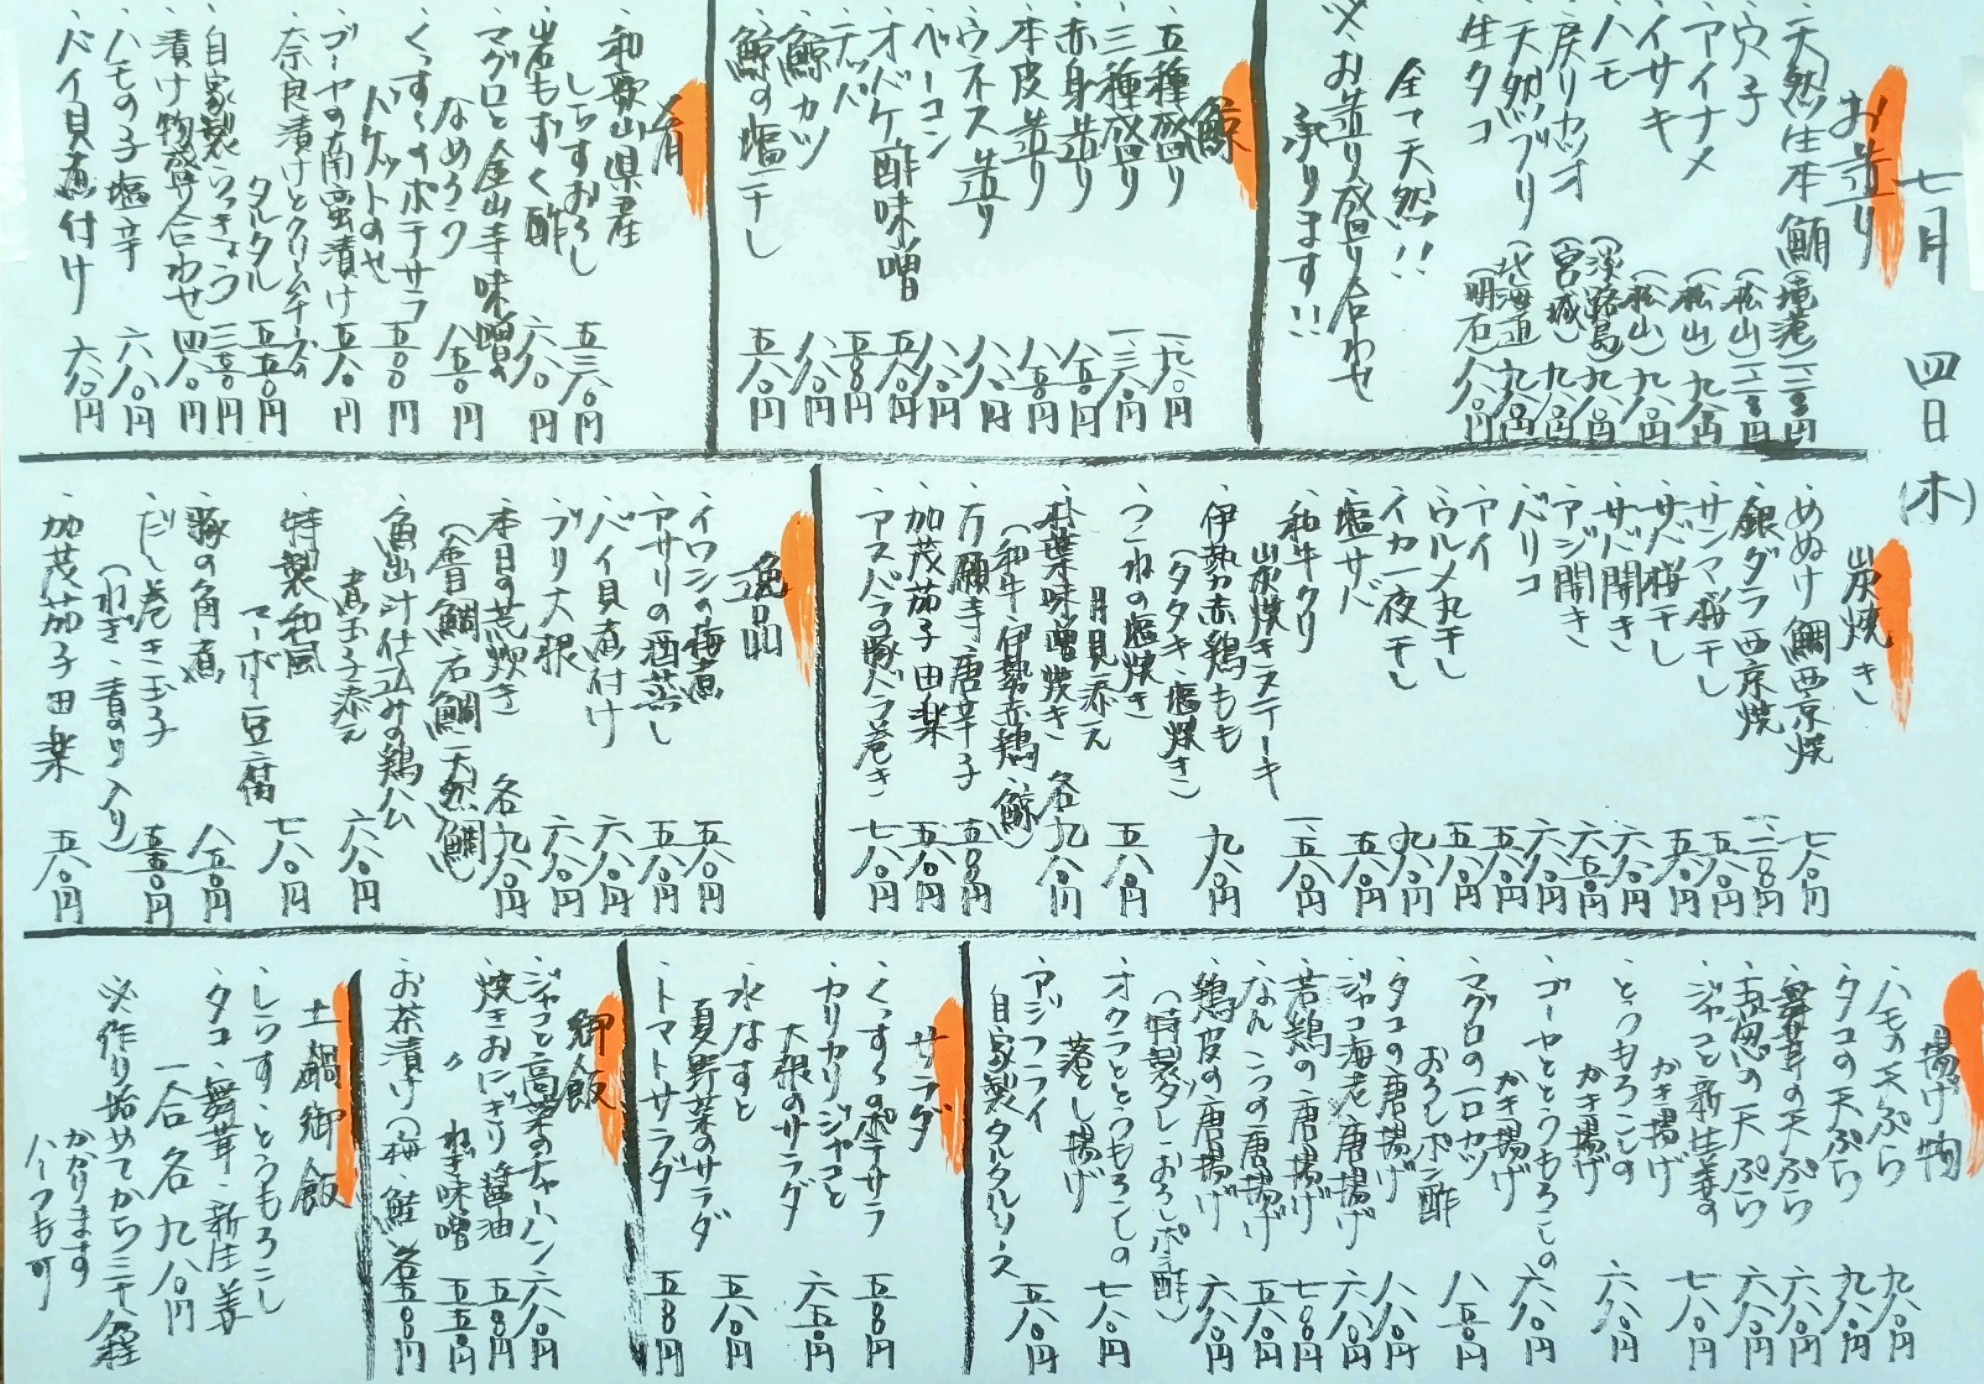 七月 四日(木)
お造り
・天然生本鮪(境港)一二三〇円
・穴子(松山)一二三〇円
・アイナメ(松山)九八〇円
・イサキ(松山)九八〇円
・ハモ(淡路島)九八〇円
・戻りカツオ(宮城)九八〇円
・天然ブリ(北海道)九八〇円
・生タコ(明石)八八〇円
全て天然!!
※お造り盛り合わせ
承ります!!
鯨
・五種盛り 一九八〇円
・三種盛り 一三八〇円
・赤身造り 八五〇円
・本皮造り 八五〇円
・ウネス造り 八八〇円
・ベーコン 八八〇円
・オバケ酢味噌 五八〇円
・テッパ 五八〇円
・鯨カツ 八八〇円
・鯨の塩干し 五八〇円
肴
・和歌山県産
しらすおろし 五三〇円
・岩もずく酢 六八〇円
・マグロと金山寺味噌の
なめろう 八五〇円
・くっすーのポテサラ 五〇〇円
バケットのせ
・ゴーヤの南蛮漬け 五八〇円
・奈良漬けとクリームチーズの
タルタル 五五〇円
・自家製らっきょう 三五〇円
・漬け物盛り合わせ 四八〇円
・ハモの子塩辛 六八〇円
・バイ貝煮付け 六八〇円
炭焼き
・めぬけ鯛西京焼 七八〇円
・銀ダラ西京焼 一二八〇円
・サンマ桜干し 五八〇円
・サバ桜干し 五八〇円
・サバ開き 六八〇円
・アジ開き 六五〇円
・バリコ 六八〇円
・アイ 五八〇円
・ウルメ丸干し 五八〇円
・イカ一夜干し 九八〇円
・塩サバ 五八〇円
・和牛クリ
炭焼きステーキ 一五八〇円
・伊勢赤鶏もも
(タタキ・塩焼き) 九八〇円
・つくねの塩焼き
月見添え 五八〇円
・朴葉味噌焼き 各九八〇円
(和牛・伊勢赤鶏・鯨)
・万願寺唐辛子 五八〇円
・加茂茄子田楽 五八〇円
・アスパラの豚バラ巻き 七八〇円
逸品
・イワシの梅煮 五八〇円
・アサリの酒蒸し 五八〇円
・バイ貝煮付け 六八〇円
・ブリ大根 六八〇円
・本日の荒炊き 各九八〇円
(金目鯛・石鯛・天然鯛)
・魚出汁仕込みの鶏公
煮玉子添え 六八〇円
・特製和風
マーボー豆腐 七八〇円
・豚の角煮 八五〇円
・だし巻き玉子 五五〇円
(ねぎ・青のり入り)
・加茂茄子田楽 五八〇円
揚げ物
・ハモの天ぷら 九八〇円
・タコの天ぷら 九八〇円
・舞茸の天ぷら 六八〇円
・玉葱の天ぷら 六八〇円
・ジャコと新生姜の
かき揚げ 七八〇円
・とうもろこしの
かき揚げ 六八〇円
・ゴーヤととうもろこしの
かき揚げ 六八〇円
・マグロの一口カツ
おろしポン酢 八五〇円
・タコの唐揚げ 八八〇円
・ジャコ海老唐揚げ 六八〇円
・若鶏の唐揚げ 七八〇円
・なんこつの唐揚げ 五八〇円
・鶏皮の唐揚げ 六八〇円
(特製ダレ・おろしポン酢)
・オクラととうもろこしの
落とし揚げ 七八〇円
・アジフライ
自家製タルタルソース 五八〇円
サラダ
・くっすーのポテサラ 五八〇円
・カリカリジャコと
大根のサラダ 六五〇円
・水なすと
夏野菜のサラダ 五八〇円
・トマトサラダ 五八〇円
御飯
・ジャコと高菜のチャーハン 六八〇円
・焼きおにぎり醤油 五五〇円
・〃 ねぎ味噌 五五〇円
・お茶漬け(梅・鮭) 各五五〇円
土鍋御飯
・しらす・とうもろこし
・タコ・舞茸・新生姜
一合 各九八〇円
※作り始めてから三十分程
かかります
ハーフも可